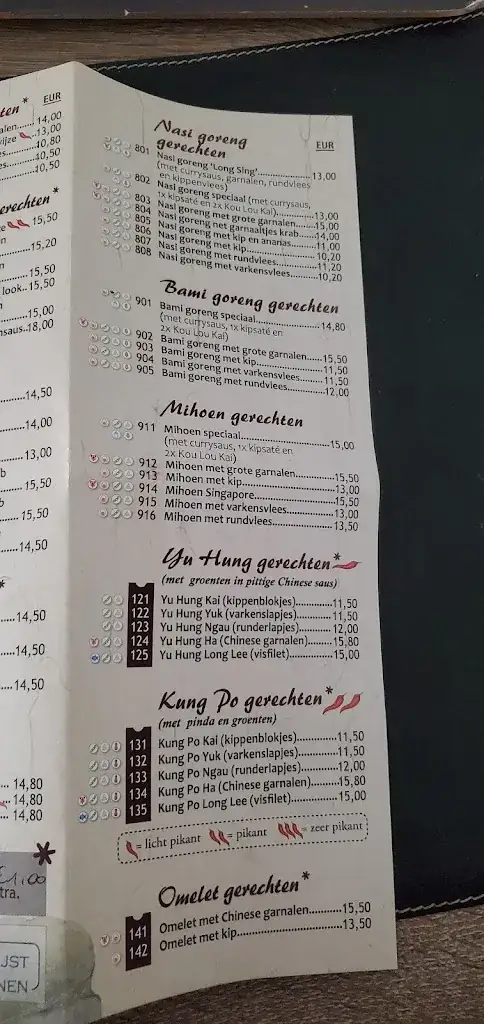 EUR
ten*
alen......14,00
vijze 13,00
es......10,80
es......10,50
10,50
erechten*
e 15,50
en
15,20
en
15,50
look..15,50
15,00
saus..18,00
14,50
14,00
13,00
15,50
15,50
14,50
*
14,50
14,50
14,50
14,80
14,80
14,80
*
€1.00
tra.
JST
NEN
Nasi goreng
gerechten
EUR
801 Nasi goreng 'Long Sing'......13,00
(met currysaus, garnalen, rundvlees
en kippenvlees)
802 Nasi goreng speciaal (met currysaus,
1x kipsaté en 2x Kou Lou Kai)......13,00
803 Nasi goreng met grote garnalen......15,00
804 Nasi goreng met garnaaltjes krab......14,00
805 Nasi goreng met kip en ananas......11,00
806 Nasi goreng met kip......10,20
807 Nasi goreng met rundvlees......11,20
808 Nasi goreng met varkensvlees......10,20
Bami goreng gerechten
901 Bami goreng speciaal......14,80
(met currysaus, 1x kipsaté en
2x Kou Lou Kai)
902 Bami goreng met grote garnalen......15,50
903 Bami goreng met kip......11,50
904 Bami goreng met varkensvlees......11,50
905 Bami goreng met rundvlees......12,00
Mihoen gerechten
911 Mihoen speciaal......15,00
(met currysaus, 1x kipsaté en
2x Kou Lou Kai)
912 Mihoen met grote garnalen......15,50
913 Mihoen met kip......13,00
914 Mihoen Singapore......15,50
915 Mihoen met varkensvlees......13,00
916 Mihoen met rundvlees......13,50
Yu Hung gerechten*
(met groenten in pittige Chinese saus)
121 Yu Hung Kai (kippenblokjes)......11,50
122 Yu Hung Yuk (varkenslapjes)......11,50
123 Yu Hung Ngau (runderlapjes)......12,00
124 Yu Hung Ha (Chinese garnalen)......15,80
125 Yu Hung Long Lee (visfilet)......15,00
Kung Po gerechten*
(met pinda en groenten)
131 Kung Po Kai (kippenblokjes)......11,50
132 Kung Po Yuk (varkenslapjes)......11,50
133 Kung Po Ngau (runderlapjes)......12,00
134 Kung Po Ha (Chinese garnalen)......15,80
135 Kung Po Long Lee (visfilet)......15,00
= licht pikant = pikant = zeer pikant
Omelet gerechten*
141 Omelet met Chinese garnalen......15,50
142 Omelet met kip......13,50